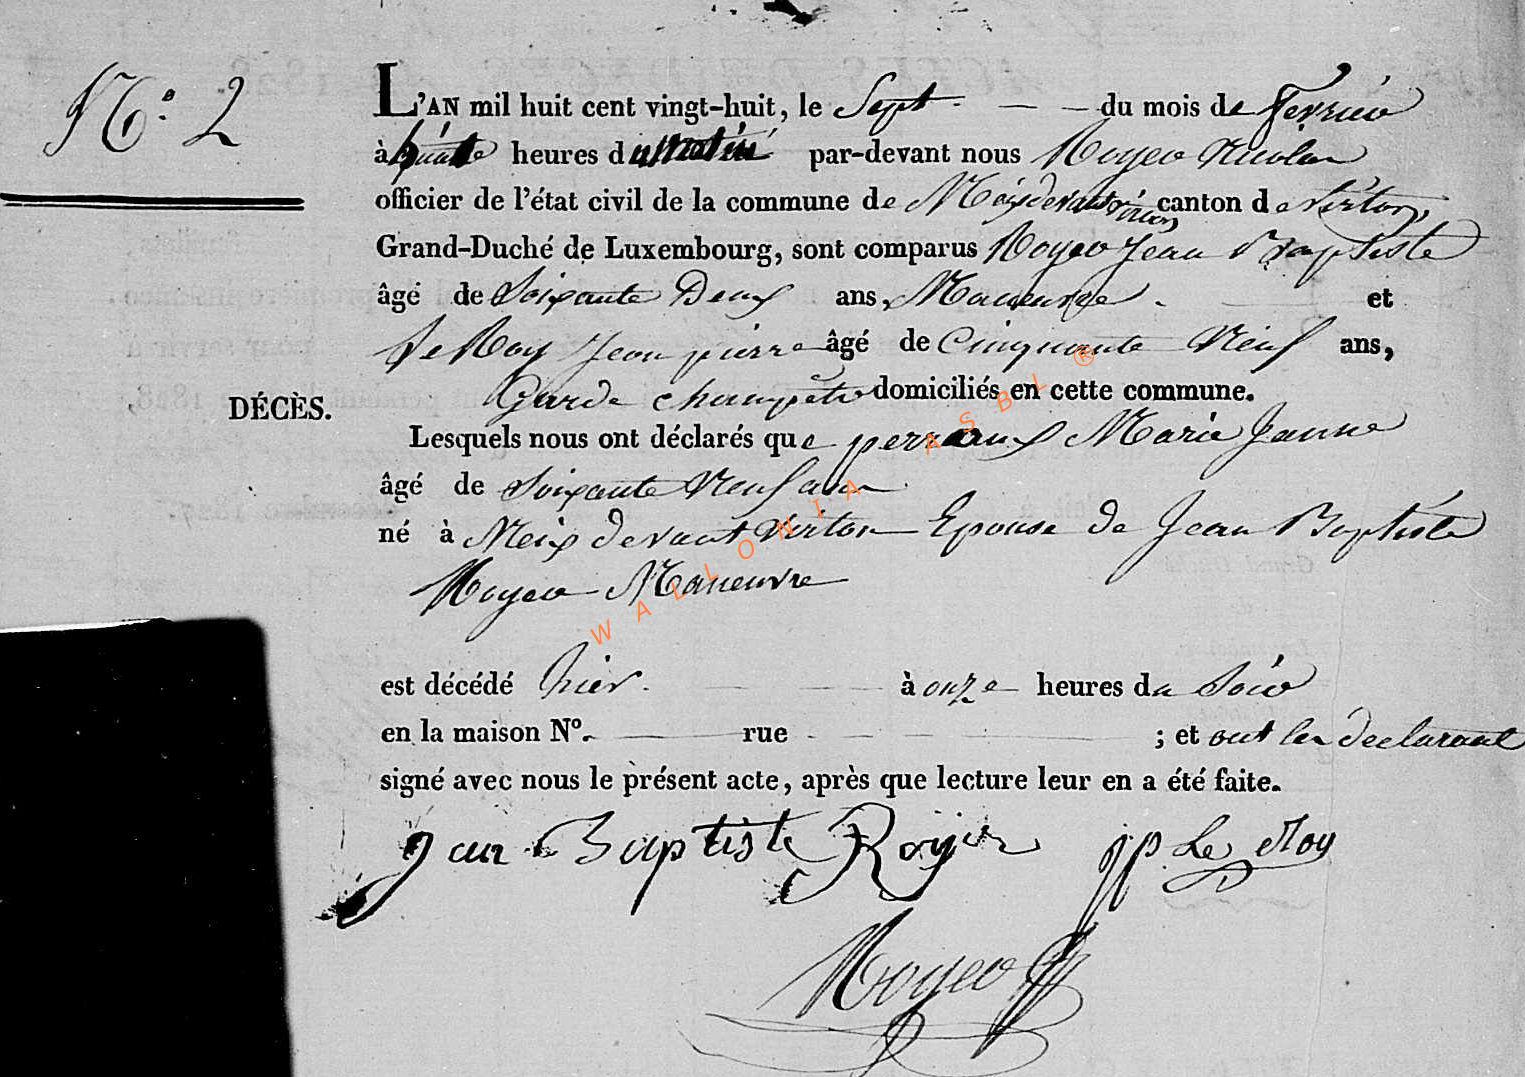 N.o 2
L'AN mil huit cent vingt-huit, le Sept du mois de fevrier
à heures du matin par-devant nous Royer Nicolas
officier de l'état civil de la commune de Meix devant virton canton de virton,
Grand-Duché de Luxembourg, sont comparus Royer Jean Baptiste
âgé de Soixante Deux ans, Maneuvre et
Le Roy Jean pierre âgé de Cinquante Neuf ans,
Garde champêtre domiciliés en cette commune.
DÉCÈS.
Lesquels nous ont déclarés que Marie Jeanne
âgé de Soixante Neuf ans
né à Meix devant Virton Epouse de Jean Baptiste
Royer Maneuvre
est décédé hier à onze heures du Soir
en la maison N°. rue ; et ont les declarant
signé avec nous le présent acte, après que lecture leur en a été faite.
Jean Baptiste Royer jp Le Roy
Royer
WALLONIA ASBL ®